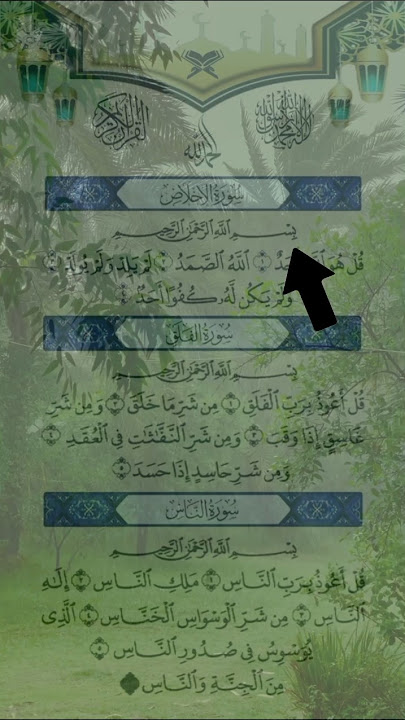 لا إله إلا الله محمد رسول الله
القرآن الكريم
الحمد لله
سُورَةُ الإِخْلَاصِ
بِسْمِ اللَّهِ الرَّحْمَٰنِ الرَّحِيمِ
قُلْ هُوَ ١ ٱللَّهُ ٱلصَّمَدُ ٢ لَمْ يَلِدْ وَلَمْ يُولَدْ ٣
وَلَمْ يَكُن لَّهُۥ كُفُوًا أَحَدٌ ٤
سُورَةُ الفَلَقِ
بِسْمِ اللَّهِ الرَّحْمَٰنِ الرَّحِيمِ
قُلْ أَعُوذُ بِرَبِّ ٱلْفَلَقِ ١ مِن شَرِّ مَا خَلَقَ ٢ وَمِن شَرِّ
غَاسِقٍ إِذَا وَقَبَ ٣ وَمِن شَرِّ ٱلنَّفَّٰثَٰتِ فِي ٱلْعُقَدِ ٤
وَمِن شَرِّ حَاسِدٍ إِذَا حَسَدَ ٥
سُورَةُ النَّاسِ
بِسْمِ اللَّهِ الرَّحْمَٰنِ الرَّحِيمِ
قُلْ أَعُوذُ بِرَبِّ ٱلنَّاسِ ١ مَلِكِ ٱلنَّاسِ ٢ إِلَٰهِ
ٱلنَّاسِ ٣ مِن شَرِّ ٱلْوَسْوَاسِ ٱلْخَنَّاسِ ٤ ٱلَّذِى
يُوَسْوِسُ فِى صُدُورِ ٱلنَّاسِ ٥
مِنَ ٱلْجِنَّةِ وَٱلنَّاسِ